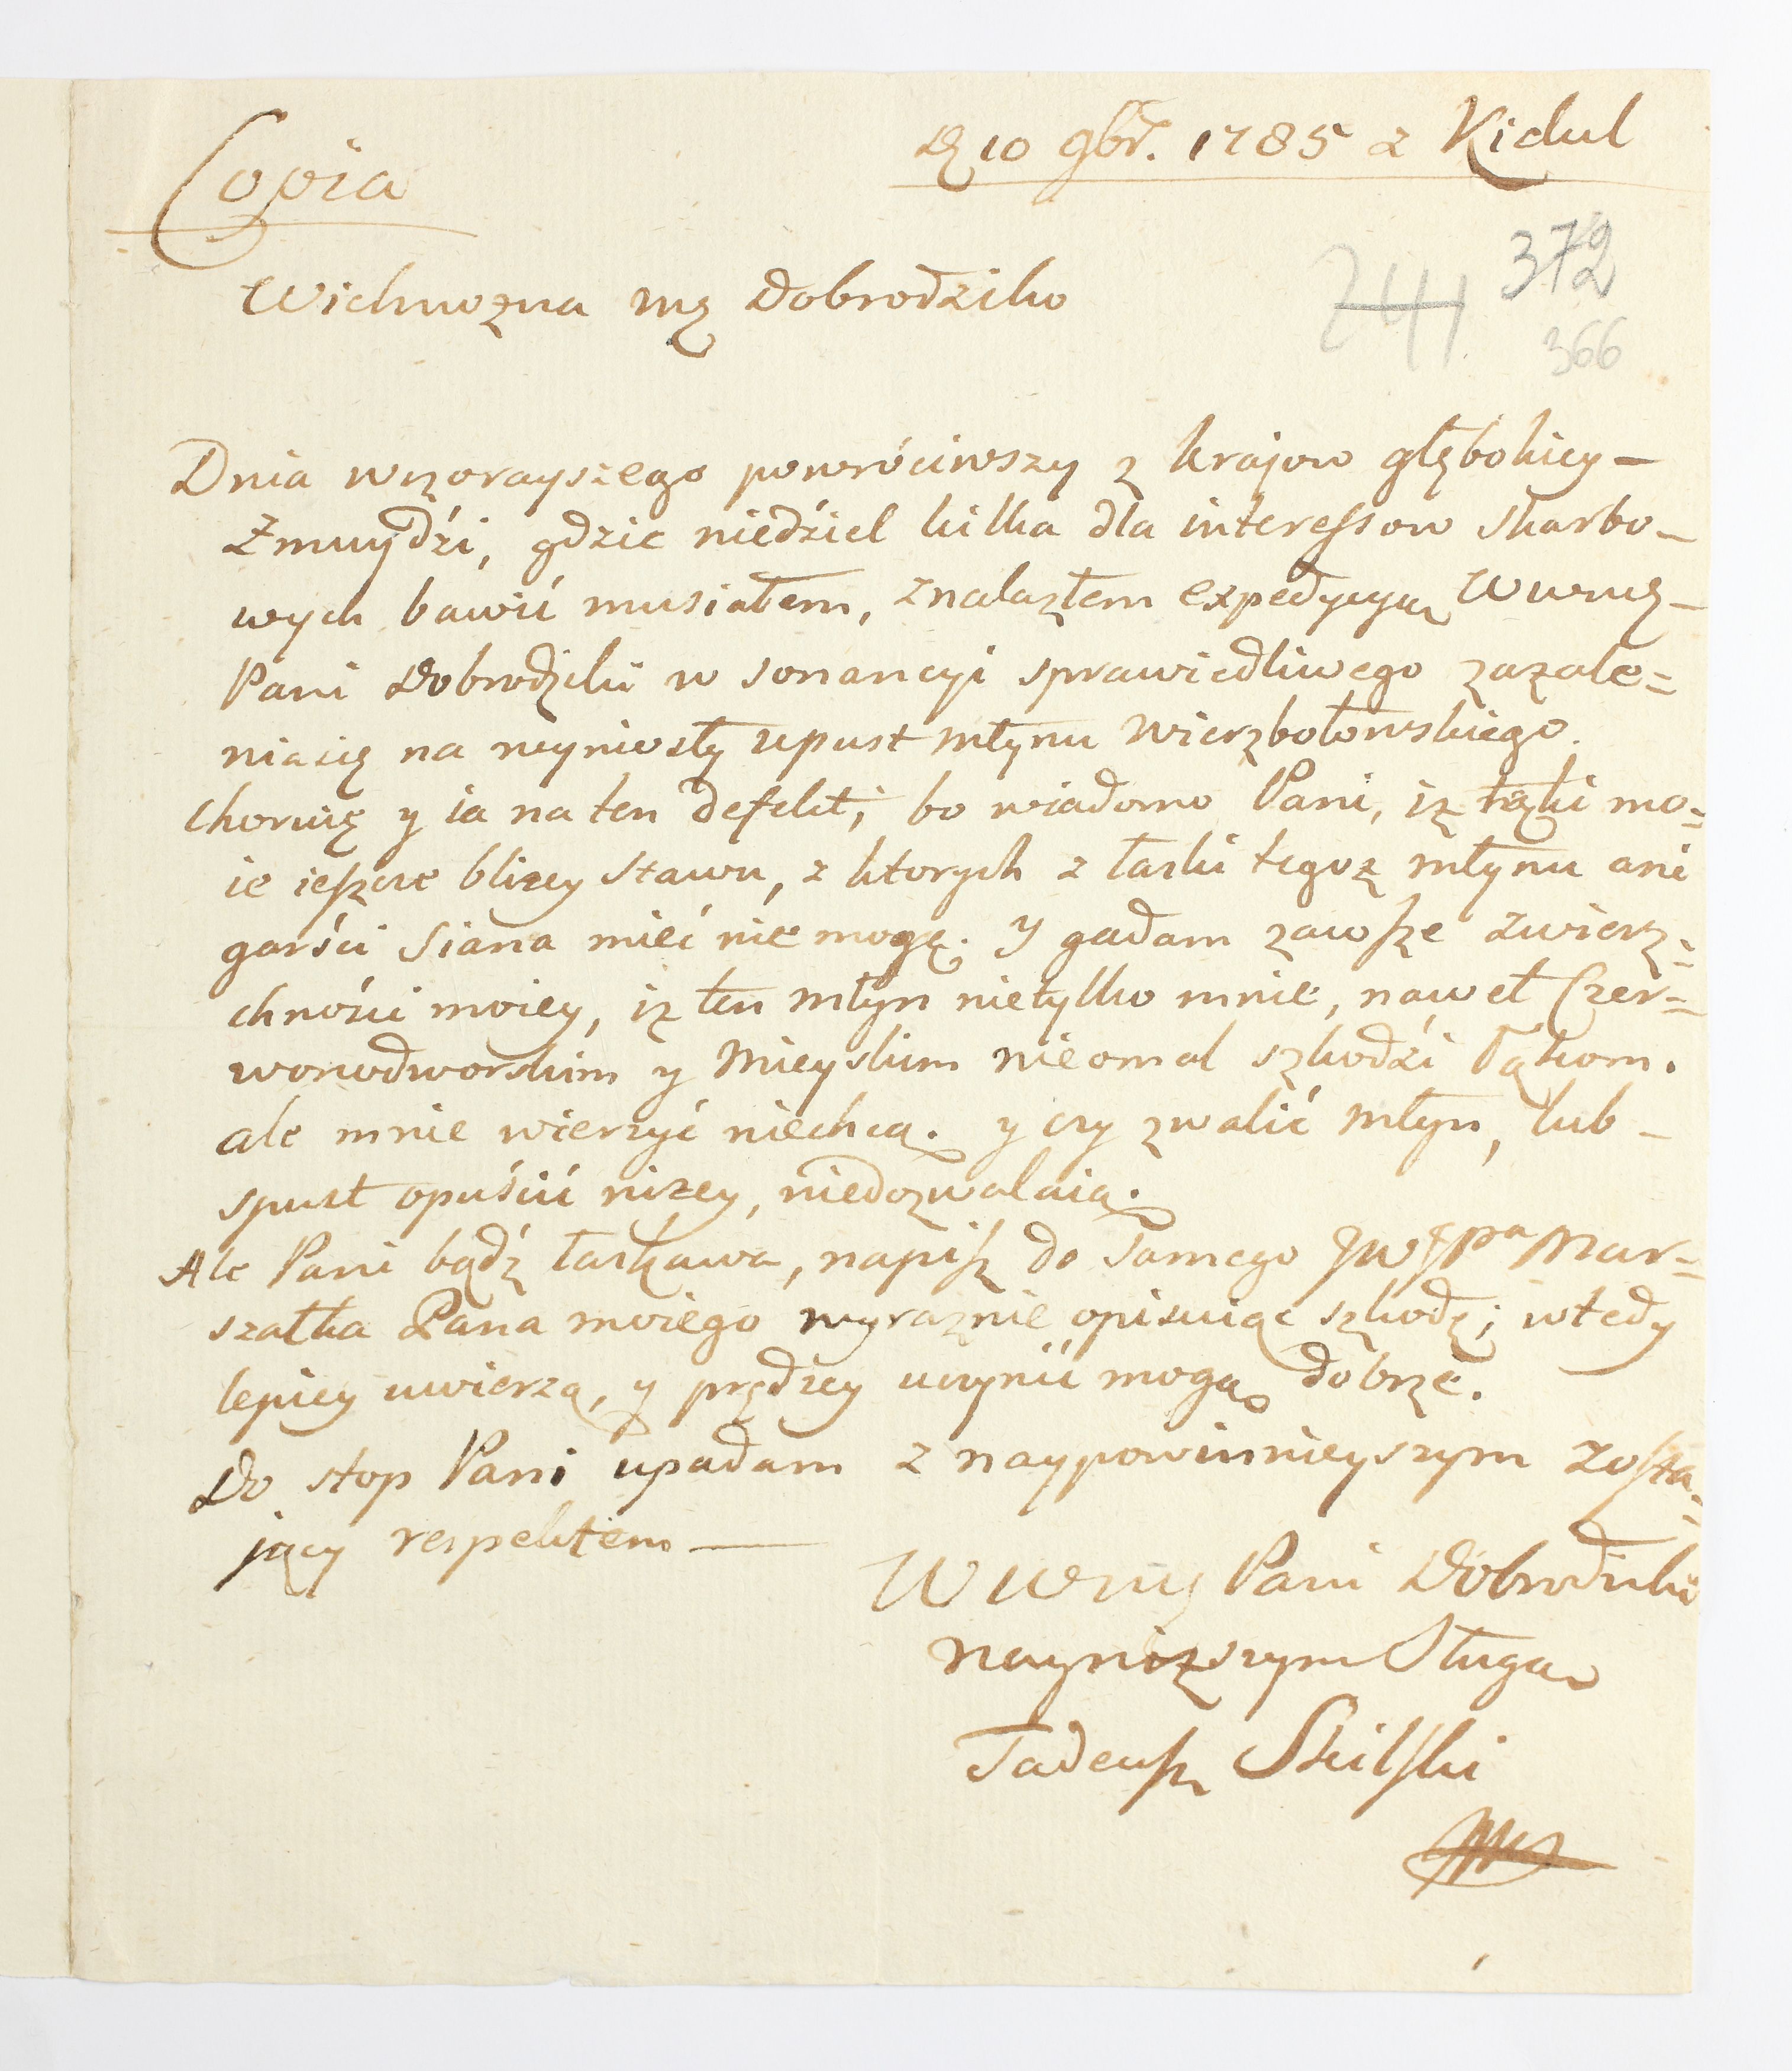 Copia
D 10 9br. 1785 z Kidul
372
244
366
Wielmozna mę Dobrodziko
Dnia wczorayszego powróciwszy z krajow głębokiey –
Zmuydźi, gdzie niedźiel kilka dla interessow skarbo –
wych bawić musiałem, znalazłem expedycyą WWMę –
Pani Dobrodzilki w sonancyi sprawiedliwego zazale=
niasię na wyniosły upust młynu Wierzbołowskiego.
choruię y ia na ten defekt; bo wiadomo Pani, iz łąki mo=
ie ieszcze bliżey stawu, z ktorych z łaski tegoz młynu ani
garści Siana mieć nie mogę. Y gadam zawsze zwierz=
chnośći moiey, iz ten młyn nietylko mnie, nawet Czer=
wonodworskim y Mieyskim nieomal szkodźi łąkom.
ale mnie wierzyć niechcą. y czy zwalić młyn, lub –
spust opuścić nizey, niedozwalaią.
Ale Pani bądź łaskawa, napisz do samego JW JPa Mar=
szałka Pana moiego wyraznie opisuiąc szkodę; wtedy
lepiey uwierzą, y prędzey uczynić mogą dobrze.
Do stop Pani upadam z naypowinnieyszym zosta=
jący respektem —
WWMę Pani Dobrodziki
nayniższym Sługą
Tadeusz Skilski